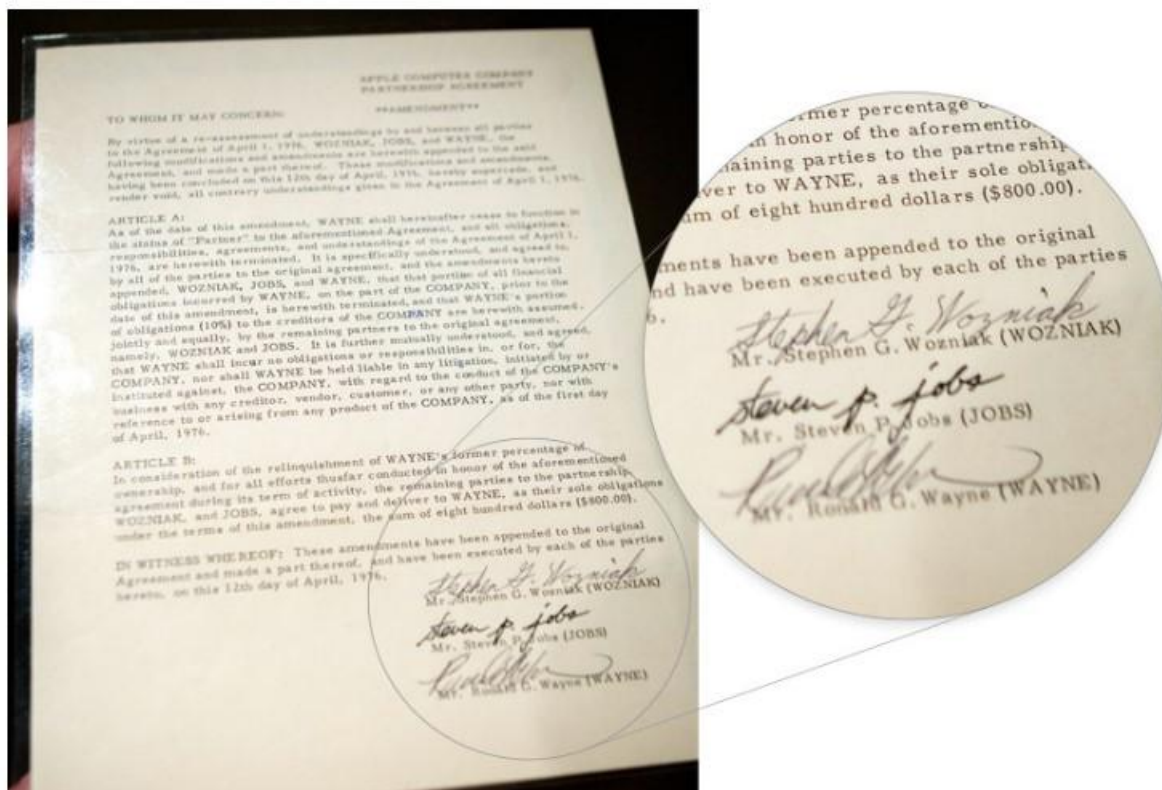 APPLE COMPUTER COMPANY
PARTNERSHIP AGREEMENT
TO WHOM IT MAY CONCERN:
**AMENDMENT**
By virtue of a re-assessment of understandings by and between all parties
to the Agreement of April 1, 1976, WOZNIAK, JOBS, and WAYNE, the
following modifications and amendments are herewith appended to the said
Agreement, and made a part thereof. These modifications and amendments,
having been concluded on this 12th day of April, 1976, hereby supercede, and
render void, all contrary understandings given in the Agreement of April 1, 1976.
ARTICLE A:
As of the date of this amendment, WAYNE shall hereinafter cease to function in
the status of "Partner" to the aforementioned Agreement, and all obligations,
responsibilities, agreements, and understandings of the Agreement of April 1,
1976, are herewith terminated. It is specifically understood, and agreed to,
by all of the parties to the original agreement, and the amendments hereto
appended, WOZNIAK, JOBS, and WAYNE, that that portion of all financial
obligations incurred by WAYNE, on the part of the COMPANY, prior to the
date of this amendment, is herewith terminated, and that WAYNE's portion
of obligations (10%) to the creditors of the COMPANY are herewith assumed,
jointly and equally, by the remaining partners to the original agreement,
namely, WOZNIAK and JOBS. It is further mutually understood, and agreed,
that WAYNE shall incur no obligations or responsibilities in, or for, the
COMPANY, nor shall WAYNE be held liable in any litigation, initiated by or
instituted against, the COMPANY, with regard to the conduct of the COMPANY's
business with any creditor, vendor, customer, or any other party, nor with
reference to or arising from any product of the COMPANY, as of the first day
of April, 1976.
ARTICLE B:
In consideration of the relinquishment of WAYNE's former percentage of
ownership, and for all efforts thusfar conducted in honor of the aforementioned
agreement during its term of activity, the remaining parties to the partnership,
WOZNIAK, and JOBS, agree to pay and deliver to WAYNE, as their sole obligations
under the terms of this amendment, the sum of eight hundred dollars ($800.00).
IN WITNESS WHEREOF: These amendments have been appended to the original
Agreement and made a part thereof, and have been executed by each of the parties
hereto, on this 12th day of April, 1976.
Stephen G. Wozniak
Mr. Stephen G. Wozniak (WOZNIAK)
steven p. jobs
Mr. Steven P. Jobs (JOBS)
Mr. Ronald G. Wayne (WAYNE)
rmer percentage o
n honor of the aforementio
aining parties to the partnership
ver to WAYNE, as their sole obligat
um of eight hundred dollars ($800.00).
ments have been appended to the original
nd have been executed by each of the parties
6.
Stephen G. Wozniak
Mr. Stephen G. Wozniak (WOZNIAK)
steven p. jobs
Mr. Steven P. Jobs (JOBS)
Mr. Ronald G. Wayne (WAYNE)